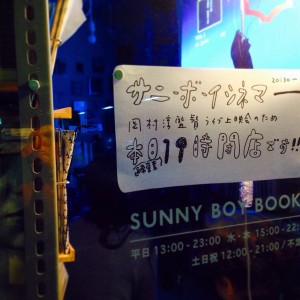 20:30〜
サニーボーイシネマ
岡村淳監督ライブ上映会のため
本日19時閉店です!!
SUNNY BOY BOOK
平日 13:00 - 23:00 水・木 15:00 - 22:
土日祝 12:00 - 21:00 / 不